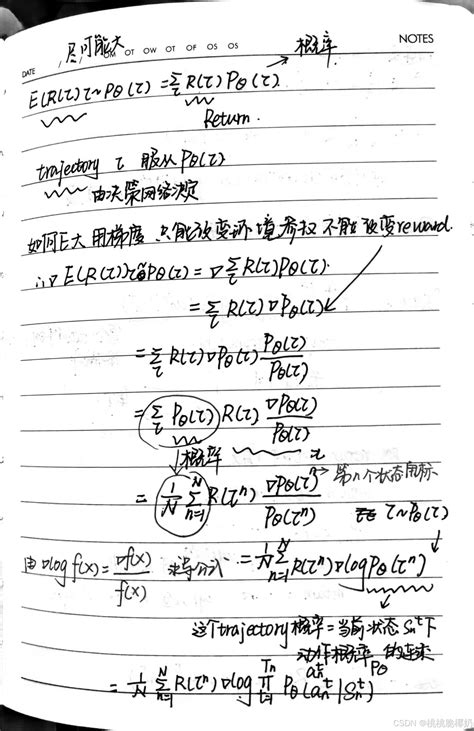 尽可能大
概率
NOTES
DATE
MO TU OW OT OF OS OS
E(R(τ))τ~Pθ(τ) = Σ_τ R(τ) Pθ(τ)
Return.
trajectory τ 服从 Pθ(τ)
由决策网络决定
如何E大 用梯度 只能改变环境参数 不能改变reward.
∴ ∇E(R(τ))τ~Pθ(τ) = ∇Σ_τ R(τ)Pθ(τ).
= Σ_τ R(τ)∇Pθ(τ)
= Σ_τ R(τ)∇Pθ(τ) Pθ(τ)/Pθ(τ)
= Σ_τ Pθ(τ) R(τ) ∇Pθ(τ)/Pθ(τ)
概率
= 1/N Σ_{n=1}^{N} R(τⁿ) ∇Pθ(τⁿ)/Pθ(τⁿ) 第n个状态
τ~Pθ(τ)
由 ∇log f(x) = ∇f(x)/f(x) 求导公式 = 1/N Σ_{n=1}^{N} R(τⁿ)∇log Pθ(τⁿ)
这个trajectory概率=当前状态Sₙᵗ下
动作aₙᵗ概率Pθ的连乘
= 1/N Σ_{n=1}^{N} R(τⁿ)∇log Π_{t=1}^{Tn} Pθ(aₙᵗ|Sₙᵗ)
CSDN @桃桃脆椰奶